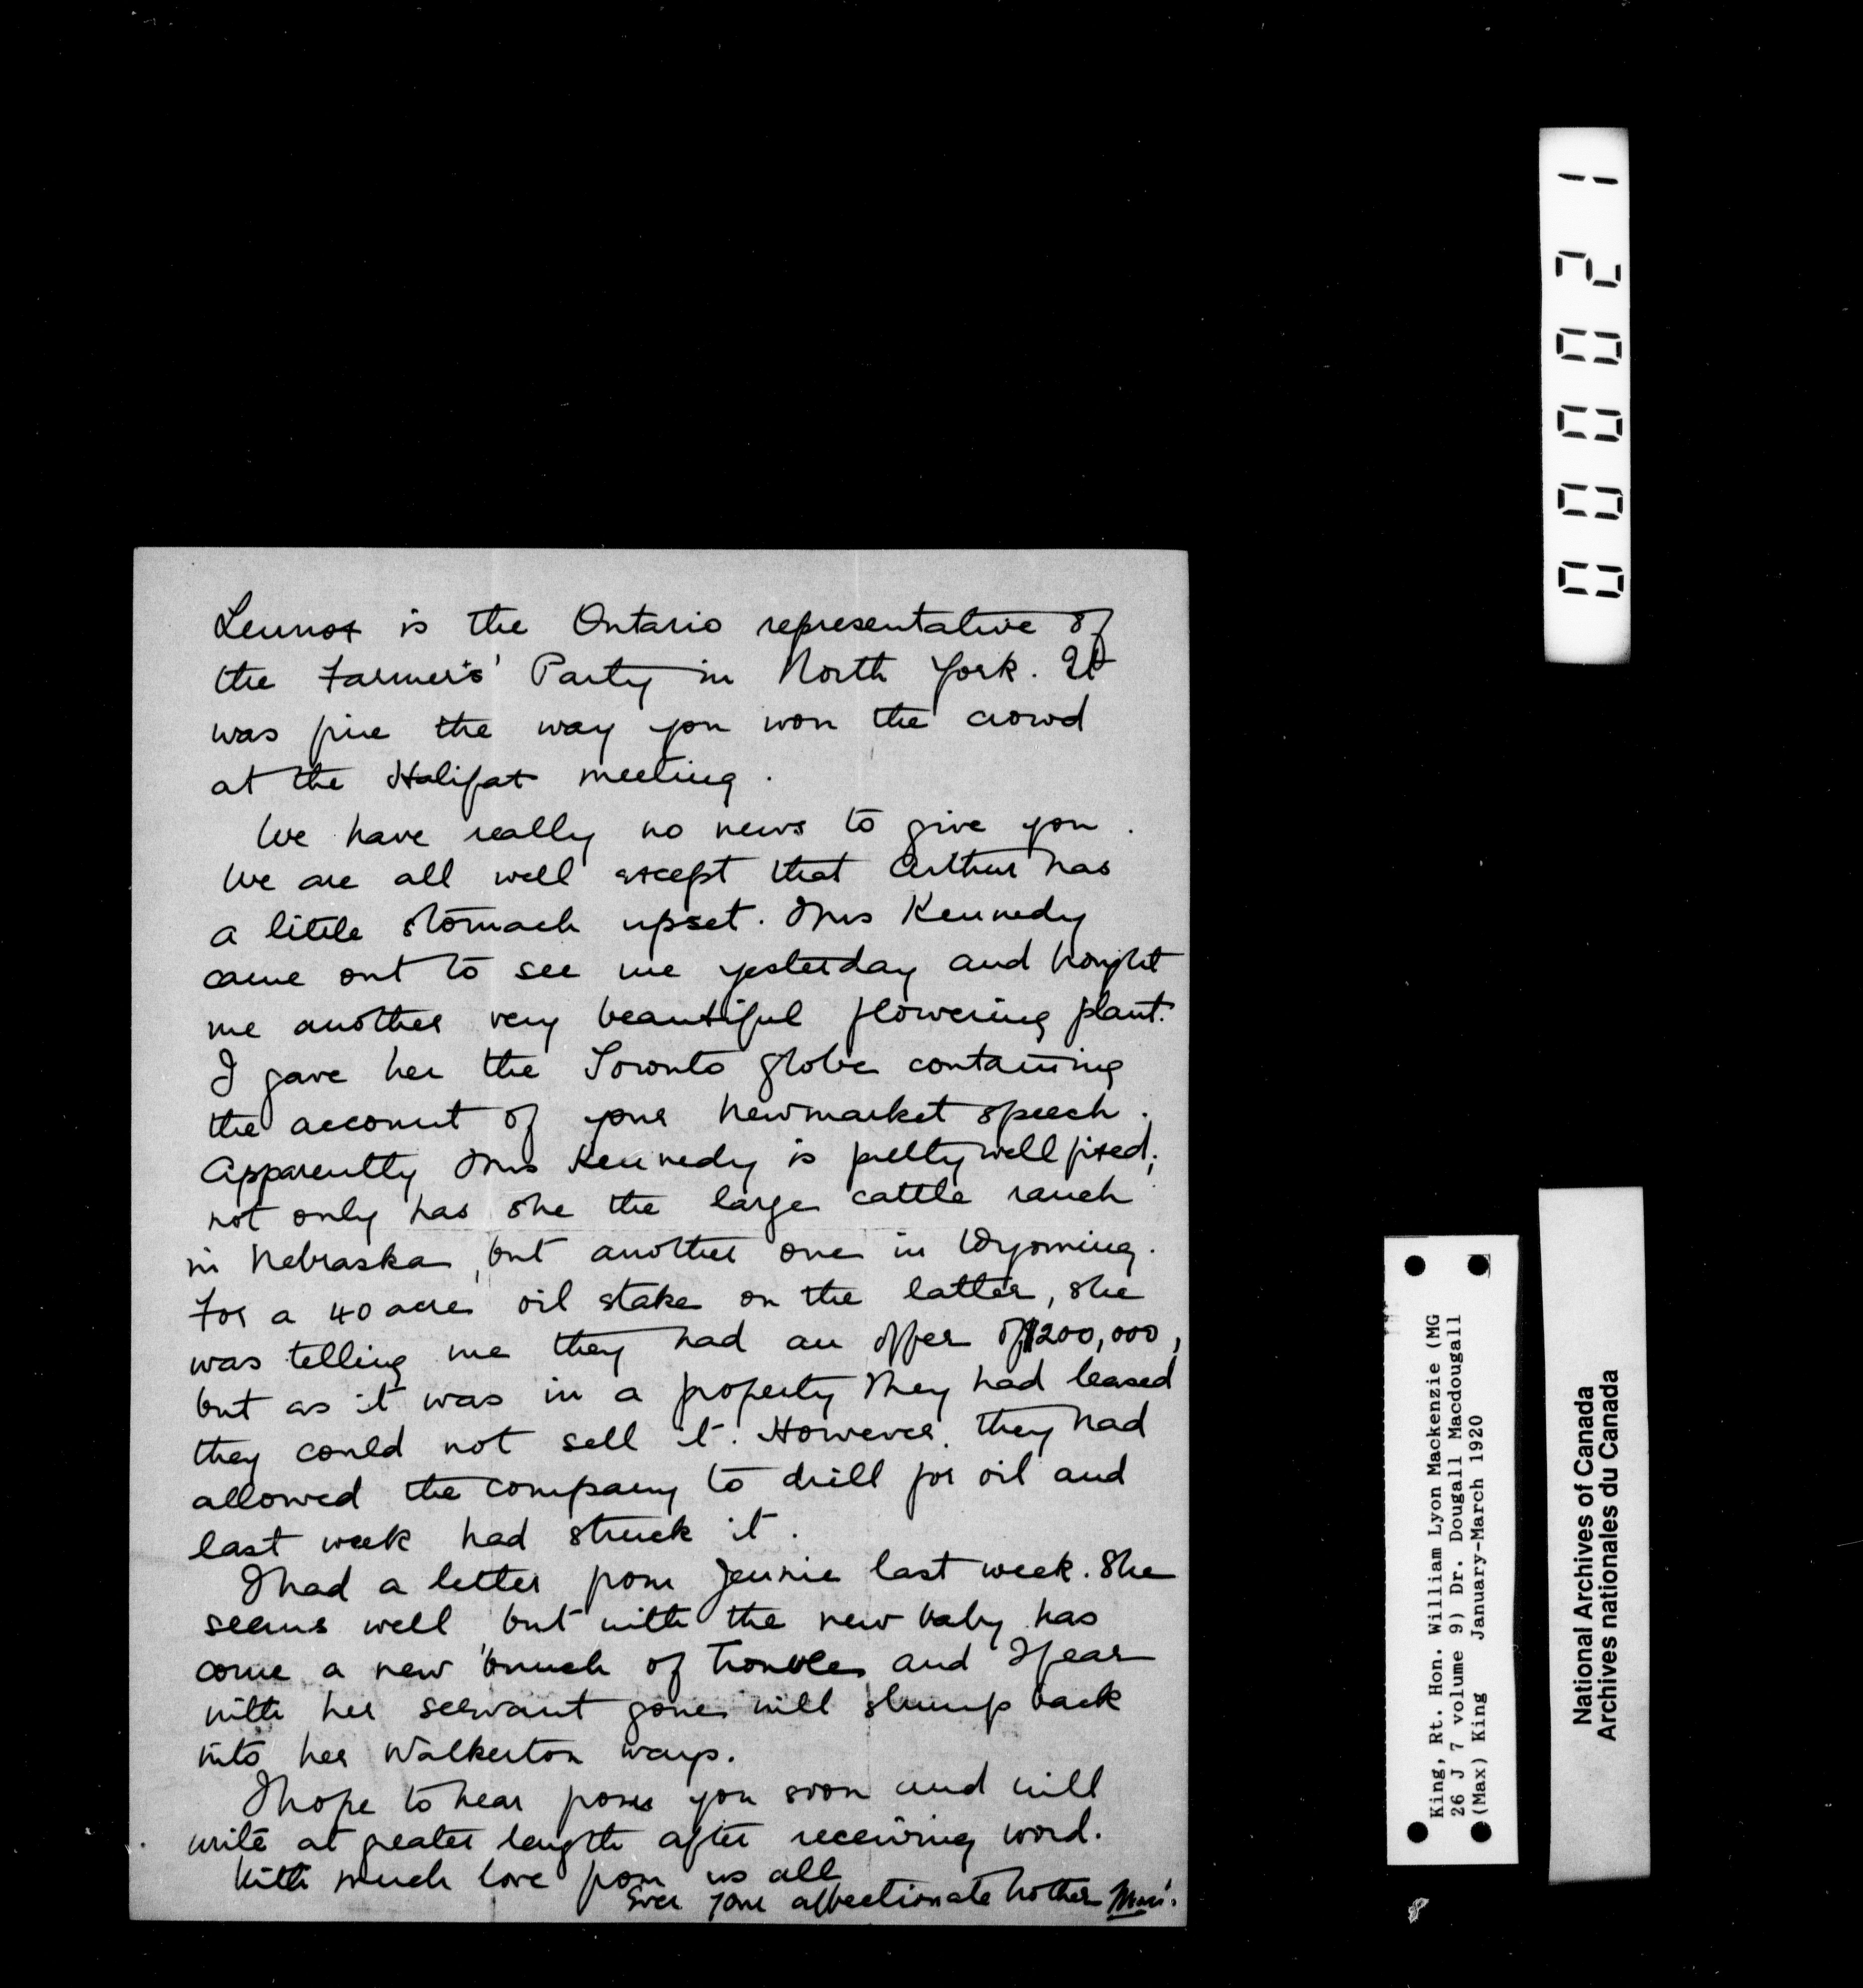 Lennox is the Ontario representative of
the Farmer's' Party in North York. It
was fine the way you won the crowd
at the Halifax meeting.
We have really no news to give you.
We are all well except that Arthur has
a little stomach upset. Mrs Kennedy
came out to see me yesterday and brought
me another very beautiful flowering plant.
I gave her the Toronto Globe containing
the account of your Newmarket speech.
Apparently Mrs Kennedy is pretty well fixed;
not only has she the large cattle ranch
in Nebraska, but another one in Wyoming.
For a 40 acre oil stake on the latter, she
was telling me they had an offer of $200,000,
but as it was in a property they had leased
they could not sell it. However, they had
allowed the company to drill for oil and
last week had struck it.
I had a letter from Jennie last week. She
seems well but with the new baby has
come a new bunch of troubles and I fear
with her servant gone will slump back
into her Walkerton ways.
I hope to hear from you soon and will
write at greater length after receiving word.
With much love from us all
Ever your affectionate brother Max.
000021
King, Rt. Hon. William Lyon Mackenzie (MG
26 J 7 volume 9) Dr. Dougall Macdougall
(Max) King January-March 1920
National Archives of Canada
Archives nationales du Canada